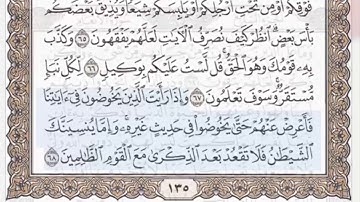 فَوْقِكُمْ أَوْ مِن تَحْتِ أَرْجُلِكُمْ أَوْ يَلْبِسَكُمْ شِيَعًا وَيُذِيقَ بَعْضَكُم
بَأْسَ بَعْضٍ ۗ ٱنظُرْ كَيْفَ نُصَرِّفُ ٱلْآيَـٰتِ لَعَلَّهُمْ يَفْقَهُونَ ٦٥ وَكَذَّبَ
بِهِۦ قَوْمُكَ وَهُوَ ٱلْحَقُّ ۚ قُل لَّسْتُ عَلَيْكُم بِوَكِيلٍ ٦٦ لِّكُلِّ نَبَإٍ
مُّسْتَقَرٌّ ۚ وَسَوْفَ تَعْلَمُونَ ٦٧ وَإِذَا رَأَيْتَ ٱلَّذِينَ يَخُوضُونَ فِىٓ ءَايَـٰتِنَا
فَأَعْرِضْ عَنْهُمْ حَتَّىٰ يَخُوضُوا۟ فِى حَدِيثٍ غَيْرِهِۦ ۚ وَإِمَّا يُنسِيَنَّكَ
ٱلشَّيْطَـٰنُ فَلَا تَقْعُدْ بَعْدَ ٱلذِّكْرَىٰ مَعَ ٱلْقَوْمِ ٱلظَّـٰلِمِينَ ٦٨
١٣٥